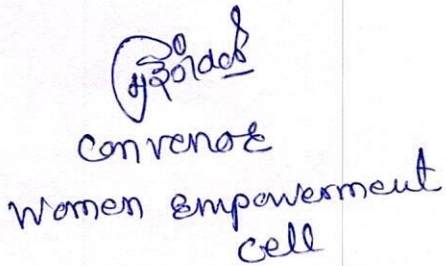 Convenor
Women Empowerment
Cell